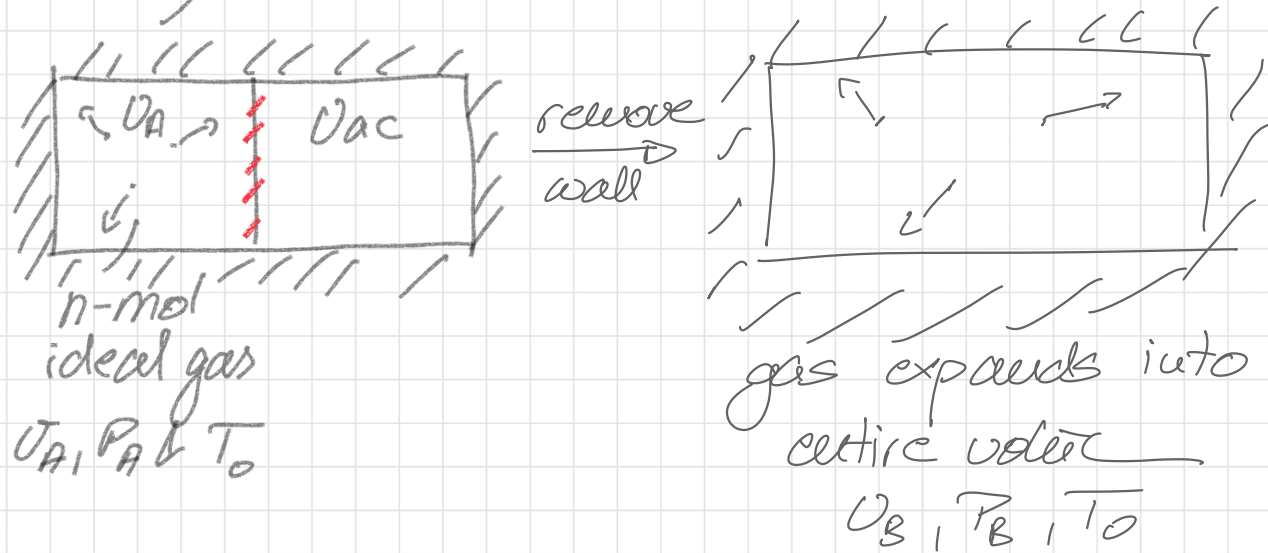 V_A
Vac
remove
wall
n-mol
ideal gas
V_A, P_A & T_0
gas expands into
entire
V_B, P_B, T_0